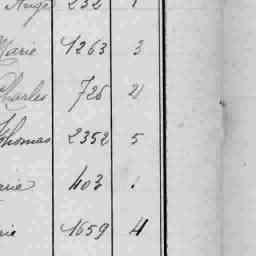 Ange 232 1
Marie 1263 3
Charles 726 2
Thomas 2352 5
arie 403 1
rie 1659 4